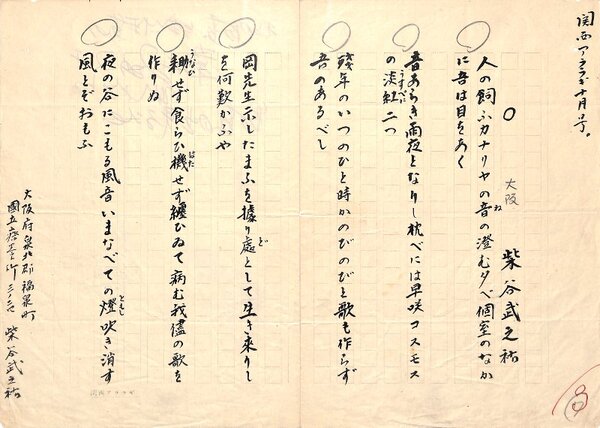 関西アララギ十月号。
〇 大阪 柴谷武之祐
人の飼ふカナリヤの音の澄む夕べ個室のなか
に吾は目をあく
音あらき雨夜となりし枕べには早咲コスモス
の淡紅二つ
うすべに
残年のいつのひと時かのびのびと歌も作らず
吾のあるべし
岡先生示したまふを據り處として生き来りし
ど
を何歎かふや
耕せず食らひ機せず纏ひゐて病む我儘の歌を
はた
作りぬ
夜の谷にこもる風音いまなべての燈吹き消す
ともし
風とぞおもふ
大阪府泉北郡福泉町
柴谷武之祐
関西アララギ